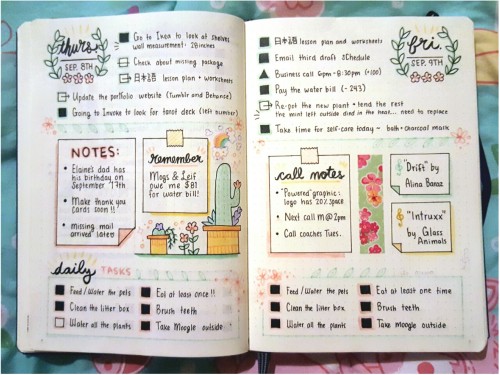 thurs.
SEP. 8TH
Go to Ikea to look at shelves
wall measurement: 28 inches
Check about missing package
日本語 lesson plan + worksheets
Update the portfolio website (Tumblr and Behance)
Going to Invoke to look for tarot deck (left number)
NOTES:
Elaine's dad has
his birthday on
September 17th
Make thank you
cards soon!!
missing mail
arrived later!
Remember
Mogs & Leif
owe me $81
for water bill!
daily TASKS
Feed/Water the pets
Clean the litter box
Water all the plants
Eat at least once!!
Brush teeth
Take Moogle outside
fri.
SEP. 9TH
日本語 lesson plan and worksheets
Email third draft schedule
Business call 6pm - 8:30pm (+100)
Pay the water bill (- 243)
Re-pot the new plant + tend the rest
the mint left outside died in the heat... need to replace
Take time for self-care today - bath + charcoal mask
call notes
"Powered" graphic:
logo has 20% space
Next call m @ 2pm
Call coaches Tues.
"Drift" by
Alina Baraz
"Intruxx"
by Glass
Animals
Feed/Water the pets
Clean the litter box
Water all the plants
Eat at least one time
Brush teeth
Take Moogle outside